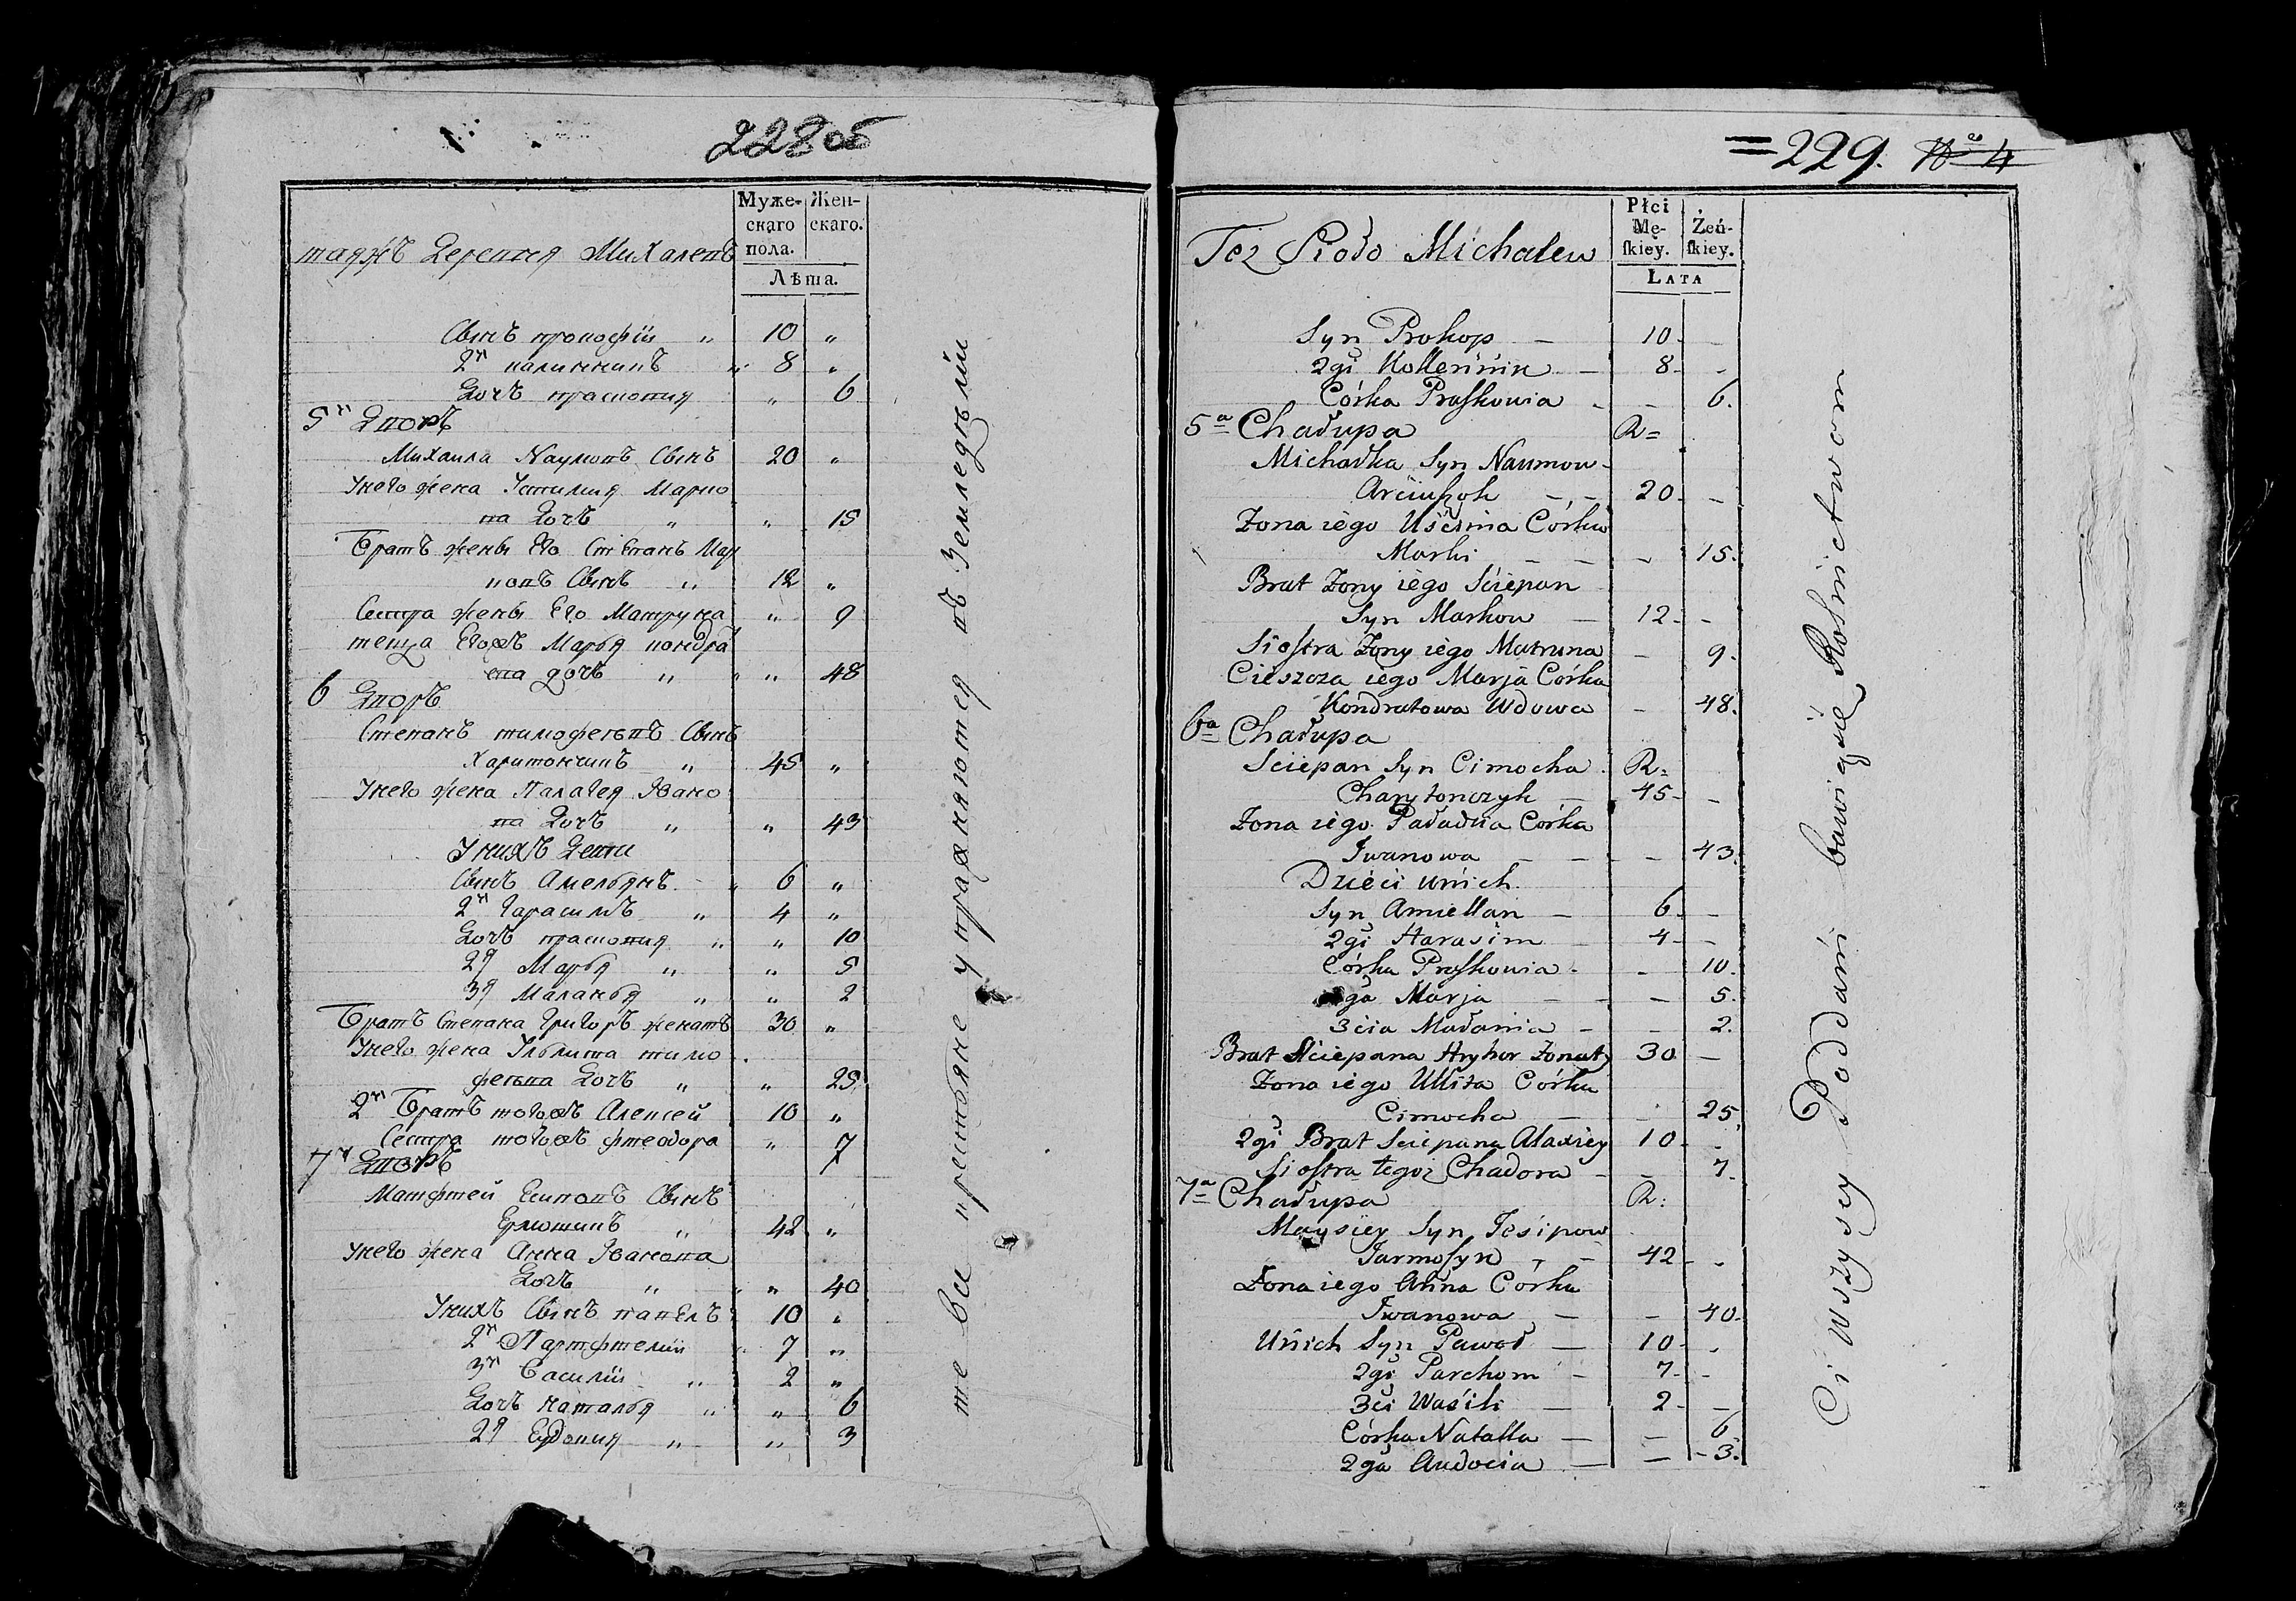 228 об
таяжъ Деревня Михалевъ
Муже-
скаго
пола.
Жен-
скаго.
Лѣта.
Сынъ прокофій „ 10 „
2й калинникъ „ 8 „
Дочь прасковия „ 6
5й Дворъ
Михаила Наумовъ Сынъ 20 „
Унего жена Устимия Марко
ва Дочь „ „ 15
Братъ жены Его Степанъ Мар
ковъ Сынъ „ 12 „
Сестра жены Его Матруна „ 9
теща Егожъ Марья кондра
ева дочь „ „ 48
6 Дворъ
Степанъ тимофеевъ Сынъ
Харитончикъ „ 45 „
Унего жена Палагея Ивано
ва Дочь „ „ 43
Унихъ Дети
Сынъ Амельянъ „ 6 „
2й Гарасимъ „ 4 „
Дочь прасковия „ „ 10
2я Марья „ „ 5
3я Маланья „ „ 2
Братъ Степана Григоръ женатъ 30 „
Унего жена Ульлита тимо
феева Дочь „ „ 25
2й Братъ тогожъ Алексей 10 „
Сестра тогожъ фтеодора „ 7
7й Дворъ
Матфтей Есиповъ Сынъ
Ермошинъ „ 42 „
Унего жена Анна Иванова
Дочь „ „ 40
Унихъ Сынъ павелъ 10 „
2й Партфтемий 7 „
3й Василій „ 2 „
Дочь наталья „ „ 6
2я Евдокия „ „ 3
те все крестьяне упражняются въ Земледѣлии
=229. № 4
Też Sioło Michalew
Płci
Mę-
skiey.
Żeń-
skiey.
LATA
Syn Prokop — 10 —
2gi Kollennik — 8 -
Córka Praskowia - — 6.
5a Chałupa R=
Michałka Syn Naumow
Arciuszok — 20 —
Żona iego Uścinia Córka
Marki — — 15.
Brat Żony iego Sciepan
Syn Markow — 12 -
Siostra Żony iego Matruna — 9.
Cieszcza iego Marja Córka
Kondratowa Wdowa — 48.
6a Chałupa
Sciepan Syn Cimocha R=
Charytonczyk — 45 —
Żona iego Pałahia Córka
Iwanowa — — 43.
Dzieci unich
Syn Amiellan — 6 —
2gi Harasim — 4 —
Córka Praskowia - — 10.
2ga Marja — — 5.
3cia Małania — — 2.
Brat Sciepana Hryhor Żonaty 30 —
Żona iego Ullita Córka
Cimocha — — 25
2gi Brat Sciepana Alaxiey 10 -
Siostra tegoż Chadora — — 7.
7a Chałupa R:
Maysiey Syn Jesipow
Jarmosyn — 42 -
Żona iego Anna Córka
Iwanowa — — 40.
Unich Syn Paweł — 10 -
2gi Parchom — 7 -
3ci Wasili — 2 —
Córka Natalla — — 6
2ga Audocia — — 3.
Ci Wszyscy Poddani bawią się Rolnictwom